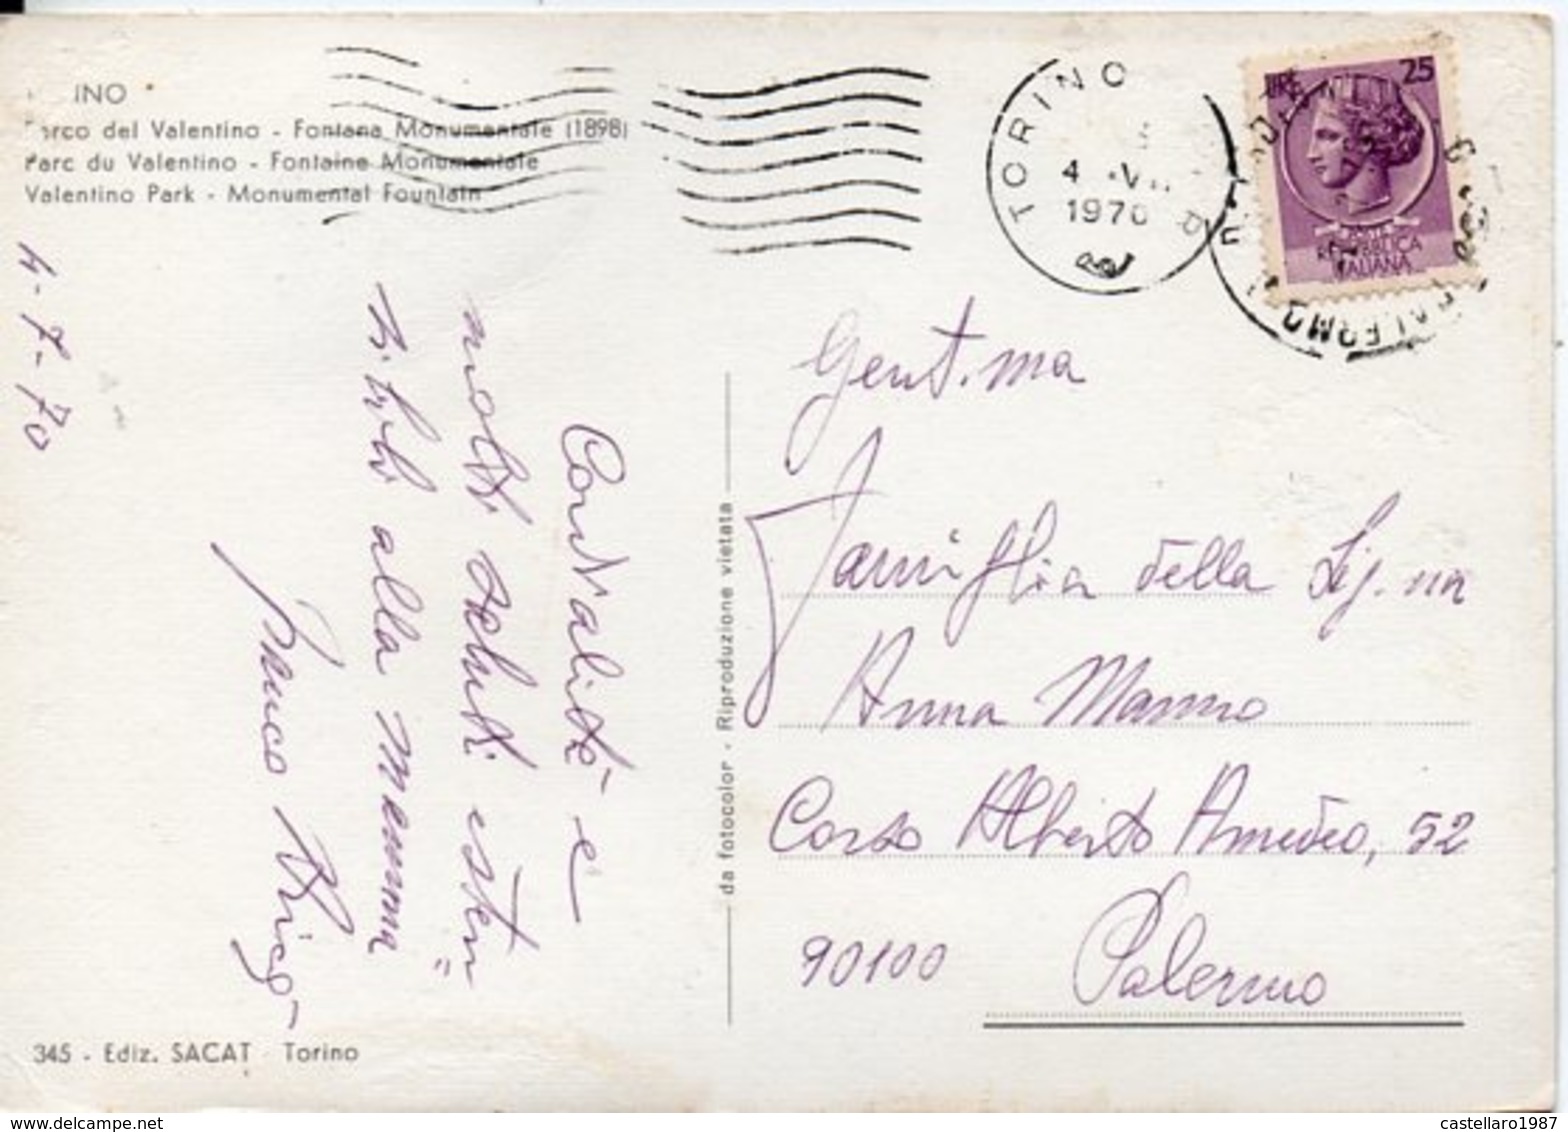 INO
Parco del Valentino - Fontana Monumentale (1898)
Parc du Valentino - Fontaine Monumentale
Valentino Park - Monumental Fountain
4-7-70
Cordialità e
molti saluti esten=
sibili alla mamma
Franco
345 - Ediz. SACAT Torino
da fotocolor - Riproduzione vietata
TORINO
4 VII
1970
LIRE 25
POSTE
REPUBBLICA
ITALIANA
PALERMO
Gent.ma
Famiglia della Sig.na
Anna Manno
Corso Alberto Amedeo, 52
90100 Palermo
castellaro1987